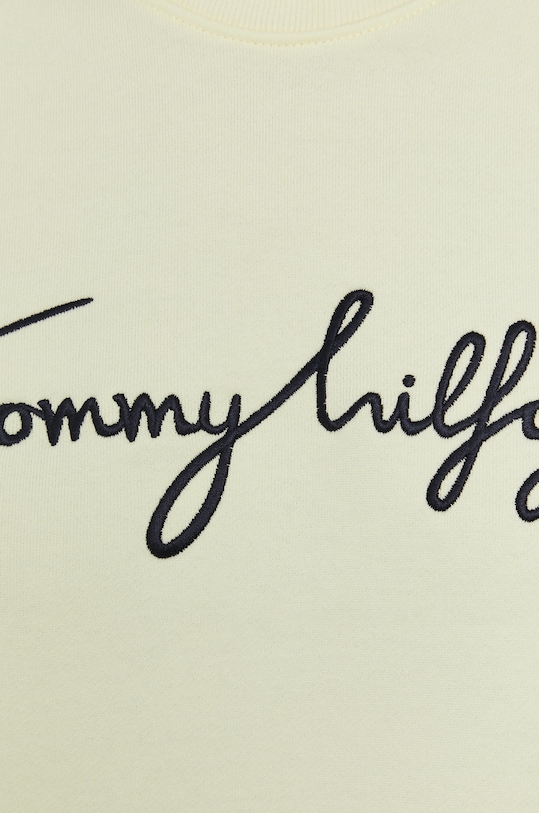 Tommy hilfig